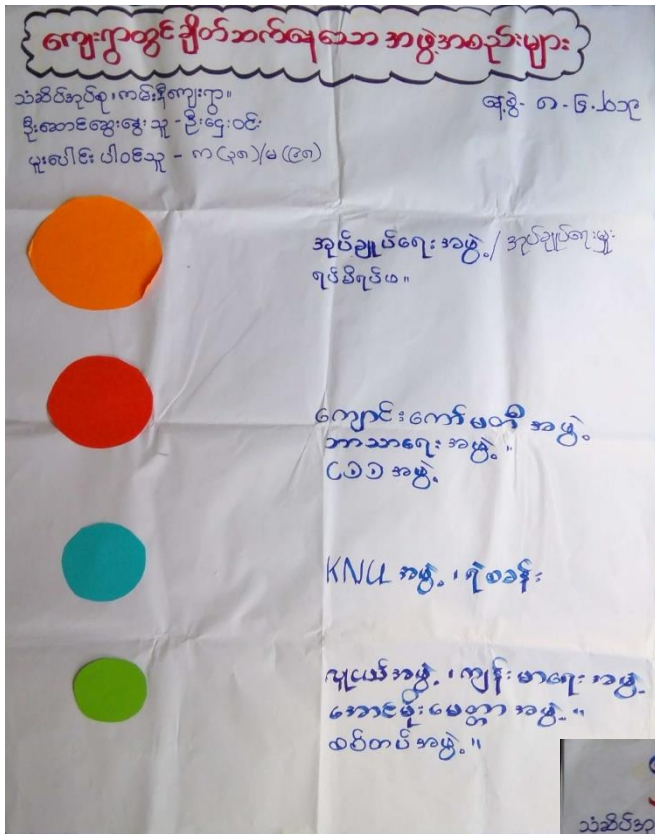 ကျေးရွာတွင်ချိတ်ဆက်နေသော အဖွဲ့အစည်းများ
သံဆိပ်အုပ်စု၊ ကမ်းနီကျေးရွာ။
နေ့စွဲ - ၈ - ၆ - ၂၀၁၉
ဦးဆောင်ဆွေးနွေးသူ - ဦးဌေးဝင်း
ပူးပေါင်းပါဝင်သူ - က (၃၈)/မ (၉၈)
အုပ်ချုပ်ရေးအဖွဲ့/ အုပ်ချုပ်ရေးမှူး
ရပ်မိရပ်ဖ။
ကျောင်းကော်မတီ အဖွဲ့
ဘာသာရေး အဖွဲ့။
CDD အဖွဲ့
KNU အဖွဲ့၊ ရဲစခန်း
လူငယ်အဖွဲ့၊ ကျန်းမာရေး အဖွဲ့
အောင်မိုးမေတ္တာ အဖွဲ့။
စစ်တပ်အဖွဲ့။